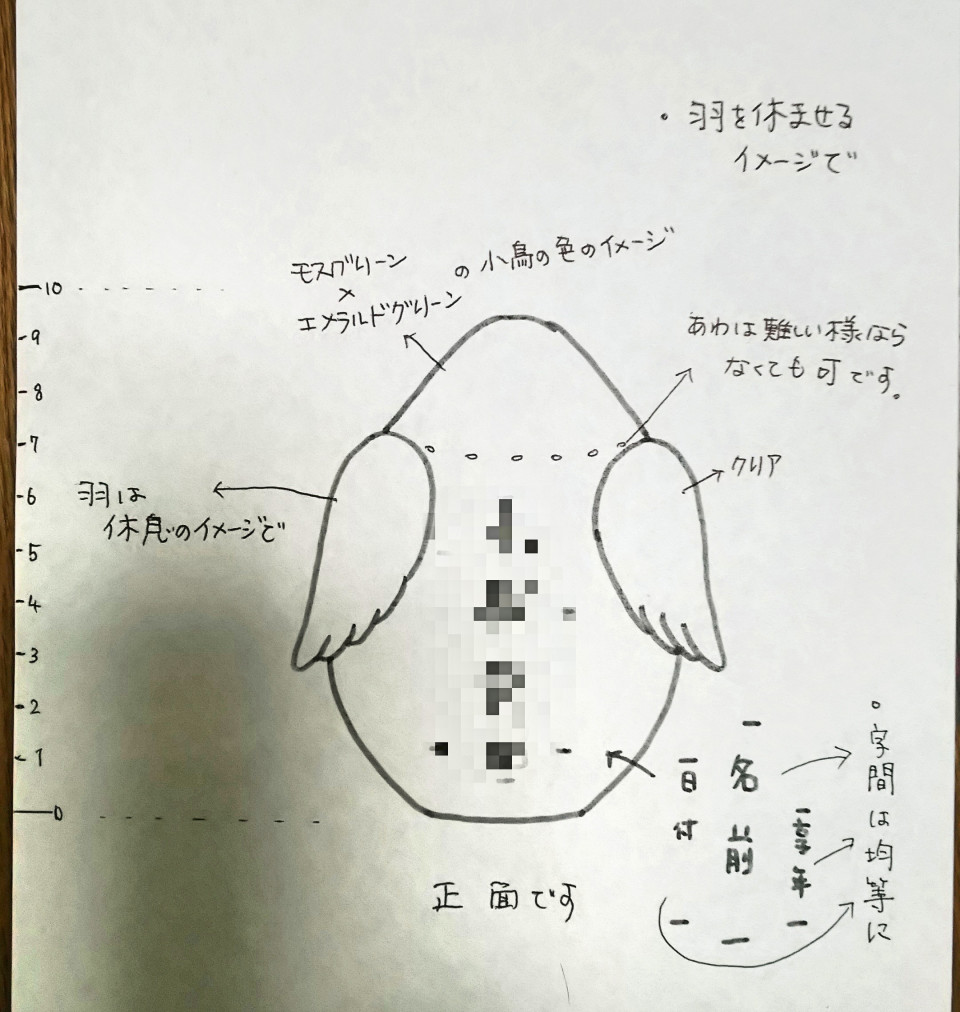 ・羽を休ませる
イメージで
モスグリーン
×
エメラルドグリーン
の小鳥の色のイメージ
あわは難しい様なら
なくても可です。
クリア
羽は
休息のイメージで
10
9
8
7
6
5
4
3
2
1
0
正面です
日付
名前
享年
・字間は均等に